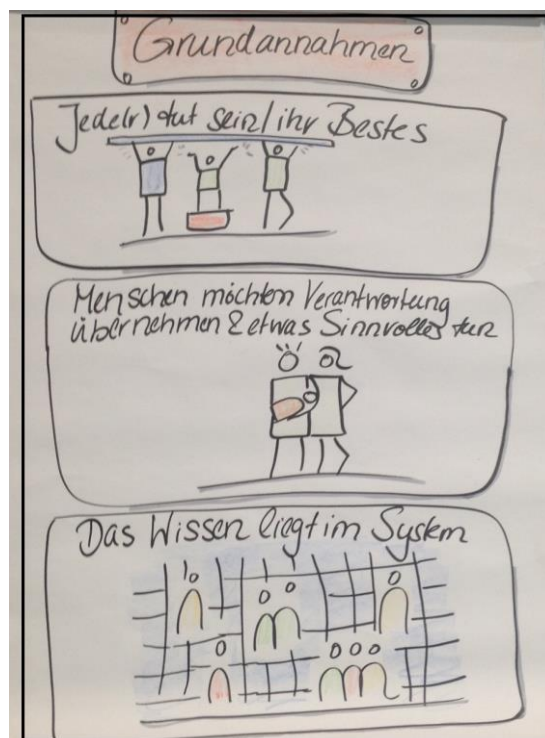 Grundannahmen
Jede(r) tut sein/ihr Bestes
Menschen möchten Verantwortung
übernehmen & etwas Sinnvolles tun
Das Wissen liegt im System